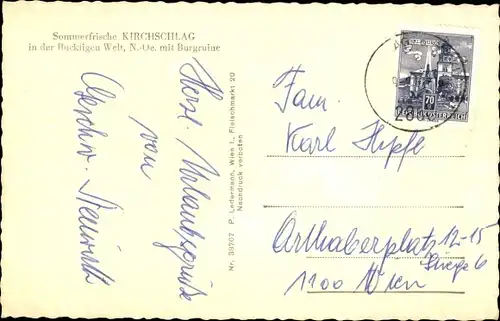 Sommerfrische KIRCHSCHLAG
in der Buckligen Welt, N.-Oe. mit Burgruine
Herzl. Urlaubsgrüße
von
Geschw.
Nr. 39707 P. Ledermann, Wien I., Fleischmarkt 20
Nachdruck verboten
70
Fam.
Karl
Arthaberplatz 12-15
Stiege 6
1100 Wien